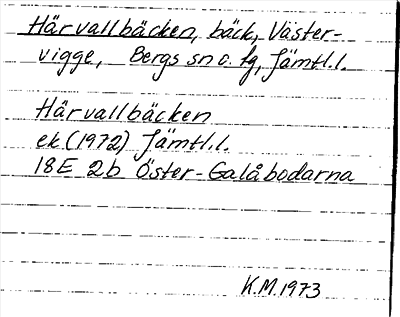 Härvallbäcken, bäck, Väster-
vigge, Bergs sn o. tg, Jämtl.l.
Härvallbäcken
ek (1972) Jämtl.l.
18E 2b Öster-Galåbodarna
K.M. 1973